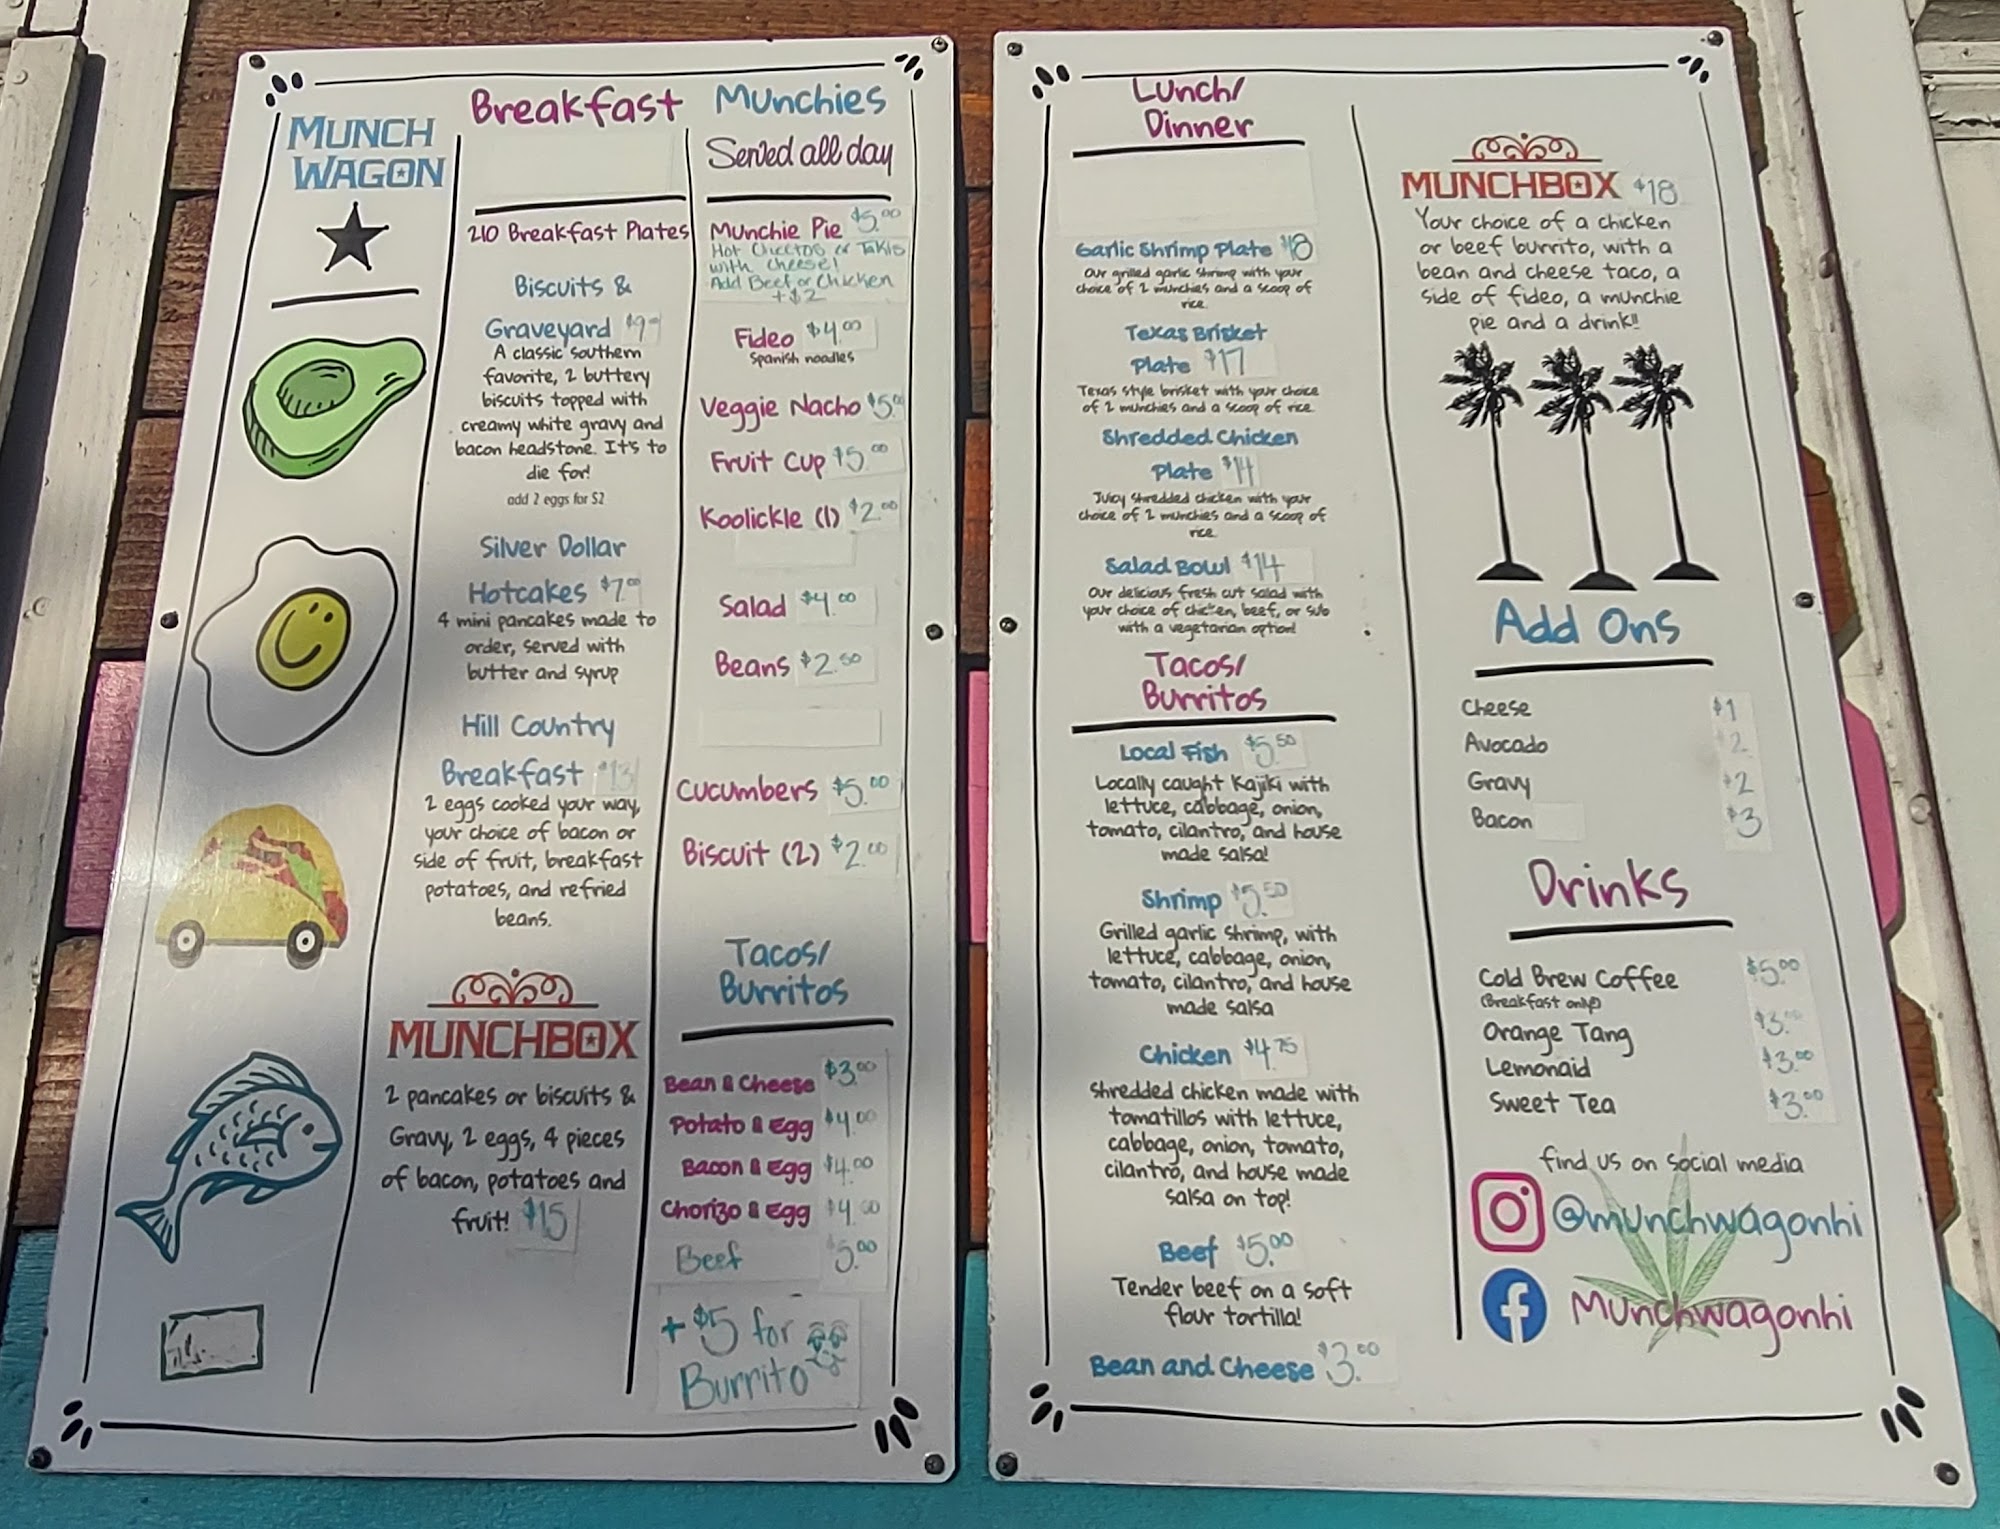 MUNCH
WAGON
Breakfast
210 Breakfast Plates
Biscuits &
Graveyard $9
A classic southern
favorite, 2 buttery
biscuits topped with
creamy white gravy and
bacon headstone. It's to
die for!
add 2 eggs for $2
Silver Dollar
Hotcakes $7.00
4 mini pancakes made to
order, served with
butter and syrup
Hill Country
Breakfast $13
2 eggs cooked your way,
your choice of bacon or
side of fruit, breakfast
potatoes, and refried
beans.
MUNCHBOX
2 pancakes or biscuits &
Gravy, 2 eggs, 4 pieces
of bacon, potatoes and
fruit! $15
Munchies
Served all day
Munchie Pie $5.00
Hot Cheetos or Takis
with cheese!
Add Beef or Chicken
+$2
Fideo $4.00
Spanish noodles
Veggie Nacho $5.00
Fruit Cup $5.00
Koolickle (1) $2.00
Salad $4.00
Beans $2.50
Cucumbers $5.00
Biscuit (2) $2.00
Tacos/
Burritos
Bean & Cheese $3.00
Potato & Egg $4.00
Bacon & Egg $4.00
Chorizo & Egg $4.00
Beef $5.00
+ $5 for
Burrito
Lunch/
Dinner
Garlic Shrimp Plate $18
Our grilled garlic shrimp with your
choice of 2 munchies and a scoop of
rice.
Texas Brisket
Plate $17
Texas style brisket with your choice
of 2 munchies and a scoop of rice.
Shredded Chicken
Plate $14
Juicy shredded chicken with your
choice of 2 munchies and a scoop of
rice.
Salad Bowl $14
Our delicious fresh cut salad with
your choice of chicken, beef, or sub
with a vegetarian option!
Tacos/
Burritos
Local Fish $5.50
Locally caught Kajiki with
lettuce, cabbage, onion,
tomato, cilantro, and house
made salsa!
Shrimp $5.50
Grilled garlic shrimp, with
lettuce, cabbage, onion,
tomato, cilantro, and house
made salsa
Chicken $4.75
Shredded chicken made with
tomatillos with lettuce,
cabbage, onion, tomato,
cilantro, and house made
salsa on top!
Beef $5.00
Tender beef on a soft
flour tortilla!
Bean and Cheese $3.00
MUNCHBOX $18
Your choice of a chicken
or beef burrito, with a
bean and cheese taco, a
side of fideo, a munchie
pie and a drink!!
Add Ons
Cheese $1
Avocado $2
Gravy $2
Bacon $3
Drinks
Cold Brew Coffee $5.00
(Breakfast only)
Orange Tang $3.00
Lemonaid $3.00
Sweet Tea $3.00
find us on social media
@munchwagonhi
Munchwagonhi